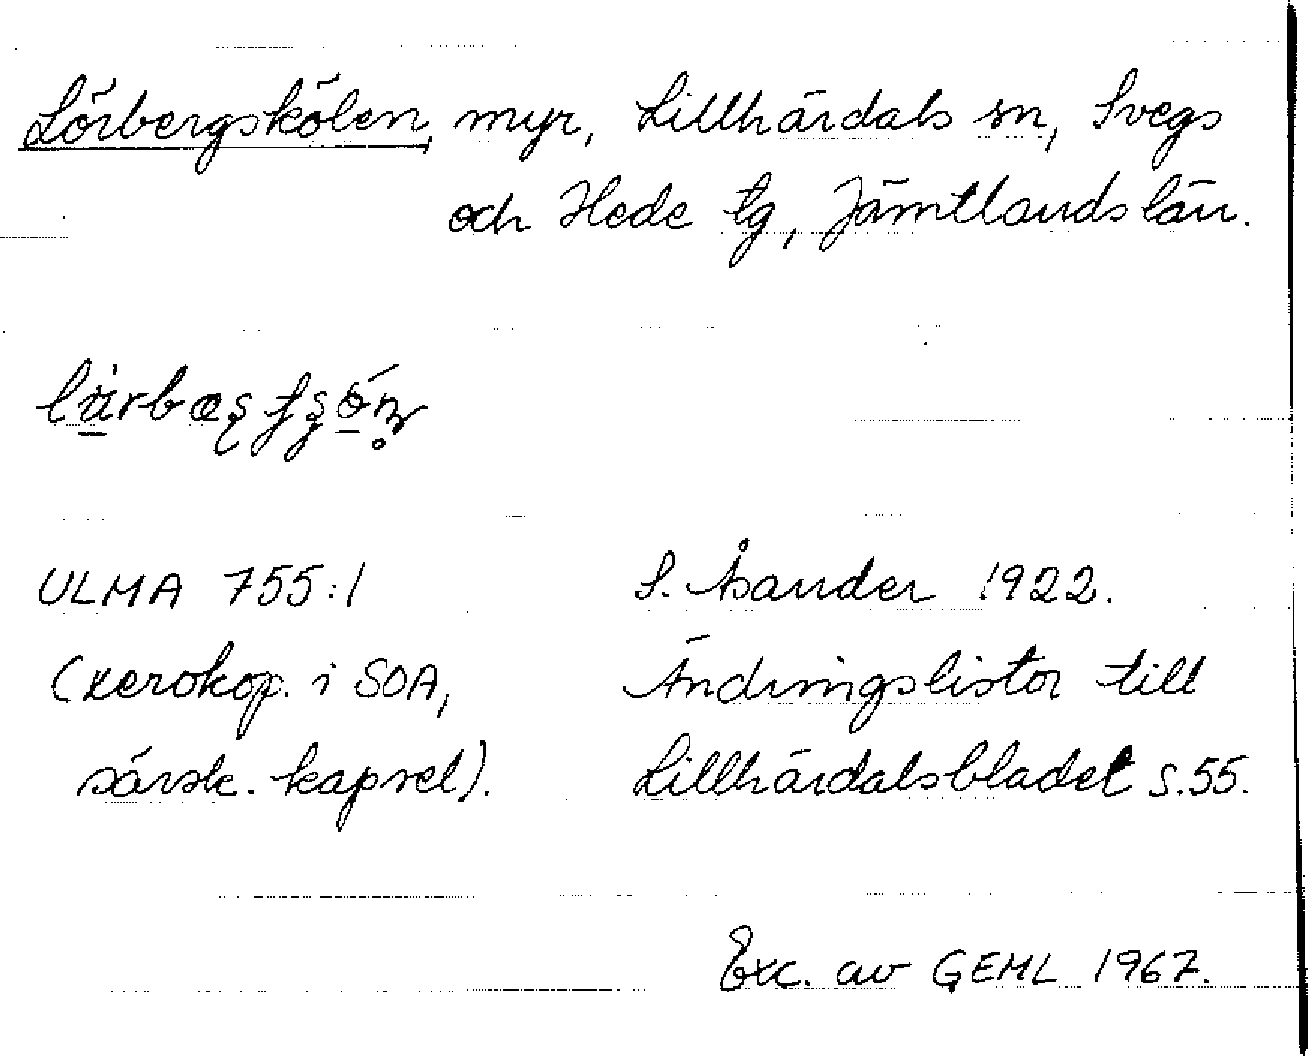 Lörbergskölen, myr, Lillhärdals sn, Svegs
och Hede tg, Jämtlands län.
ULMA 755:1
S. Åsander 1922.
(xerokop. i SOA,
Ändringslistor till
särsk. kapsel).
Lillhärdalsbladet s.55.
Exc. av GEML 1967.